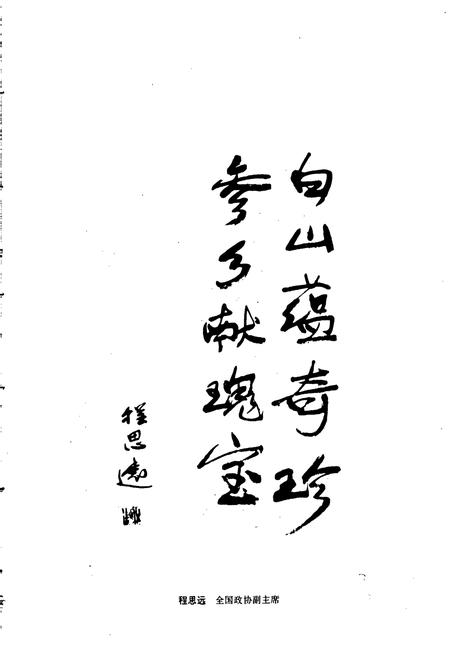 白山蕴奇珍
参乡献瑰宝
程思远
程思远 全国政协副主席